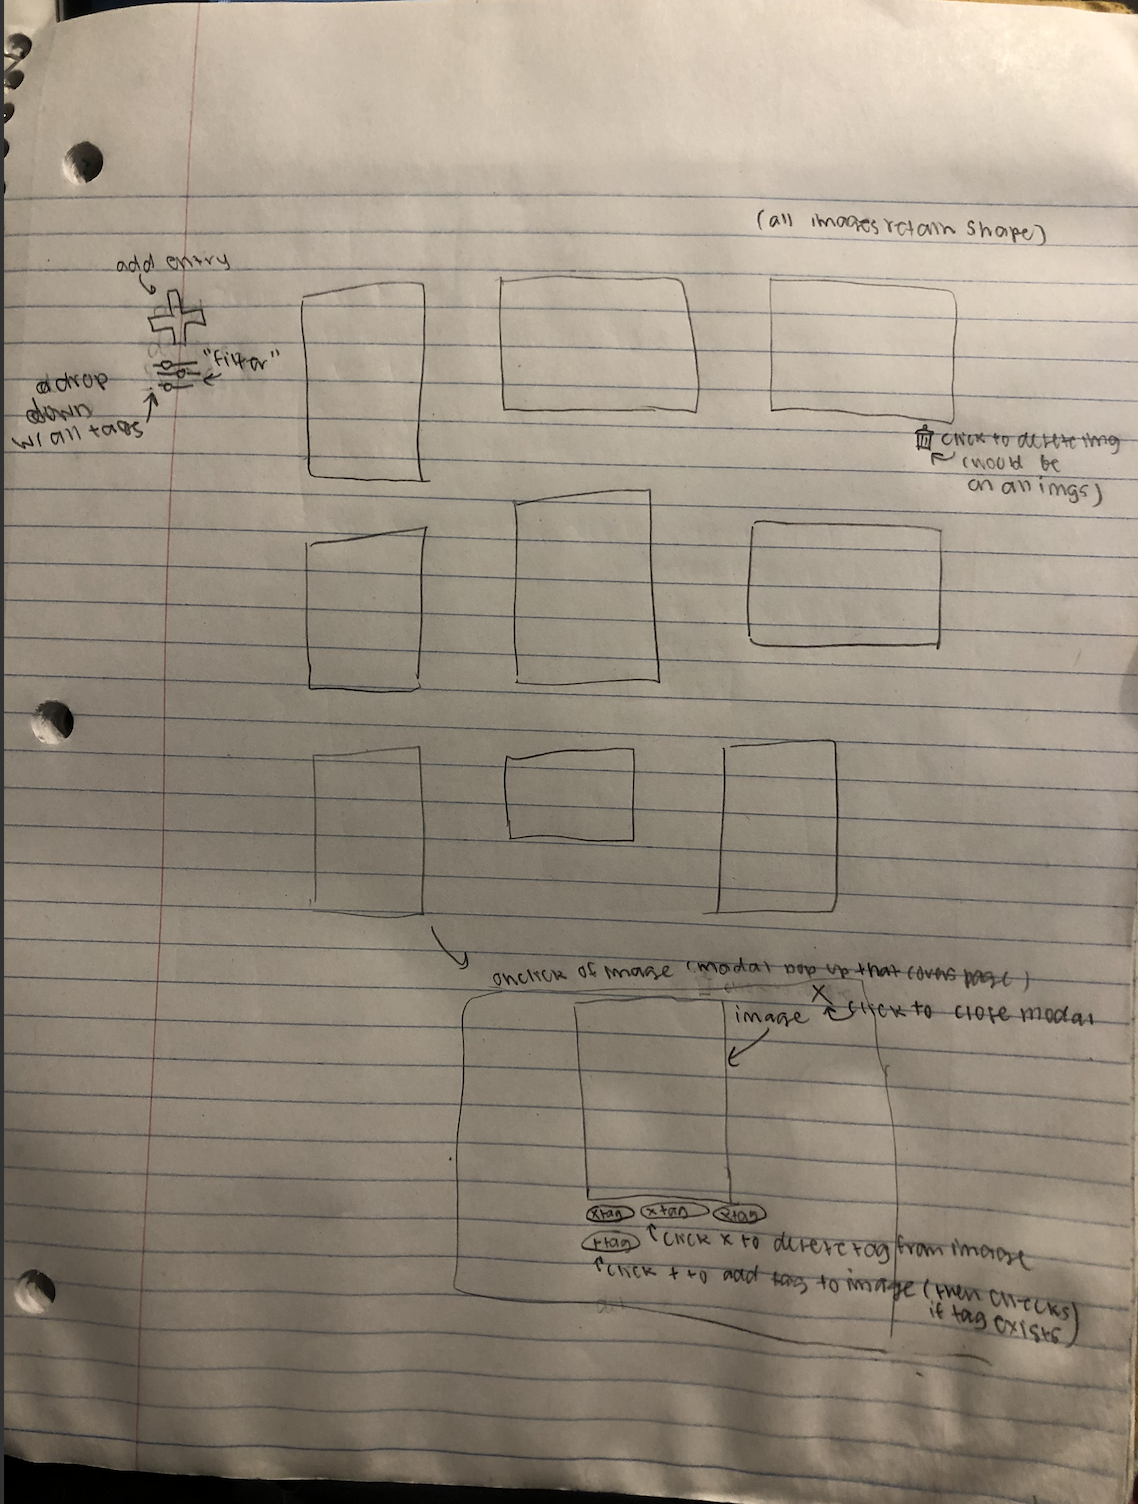 (all images retain shape)
add entry
"filter"
a drop
down
w/ all tags
click to delete img
(would be
on all imgs)
onclick of image (modal pop up that covers page)
X
image
click to close modal
x tag x tag x tag
+ tag
click x to delete tag from image
click + to add tag to image (then checks
if tag exists)